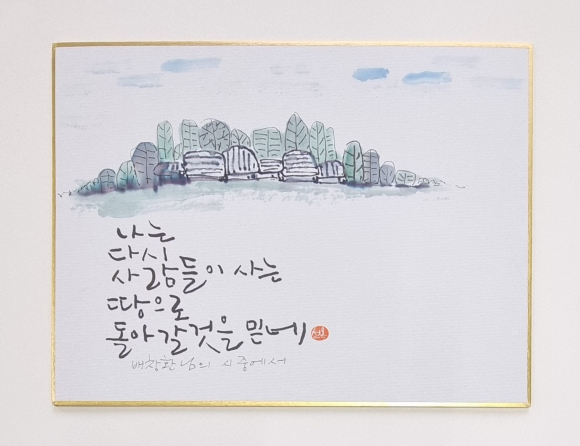 나는
다시
사람들이 사는
땅으로
돌아갈것을 믿네
배창환님의 시 중에서